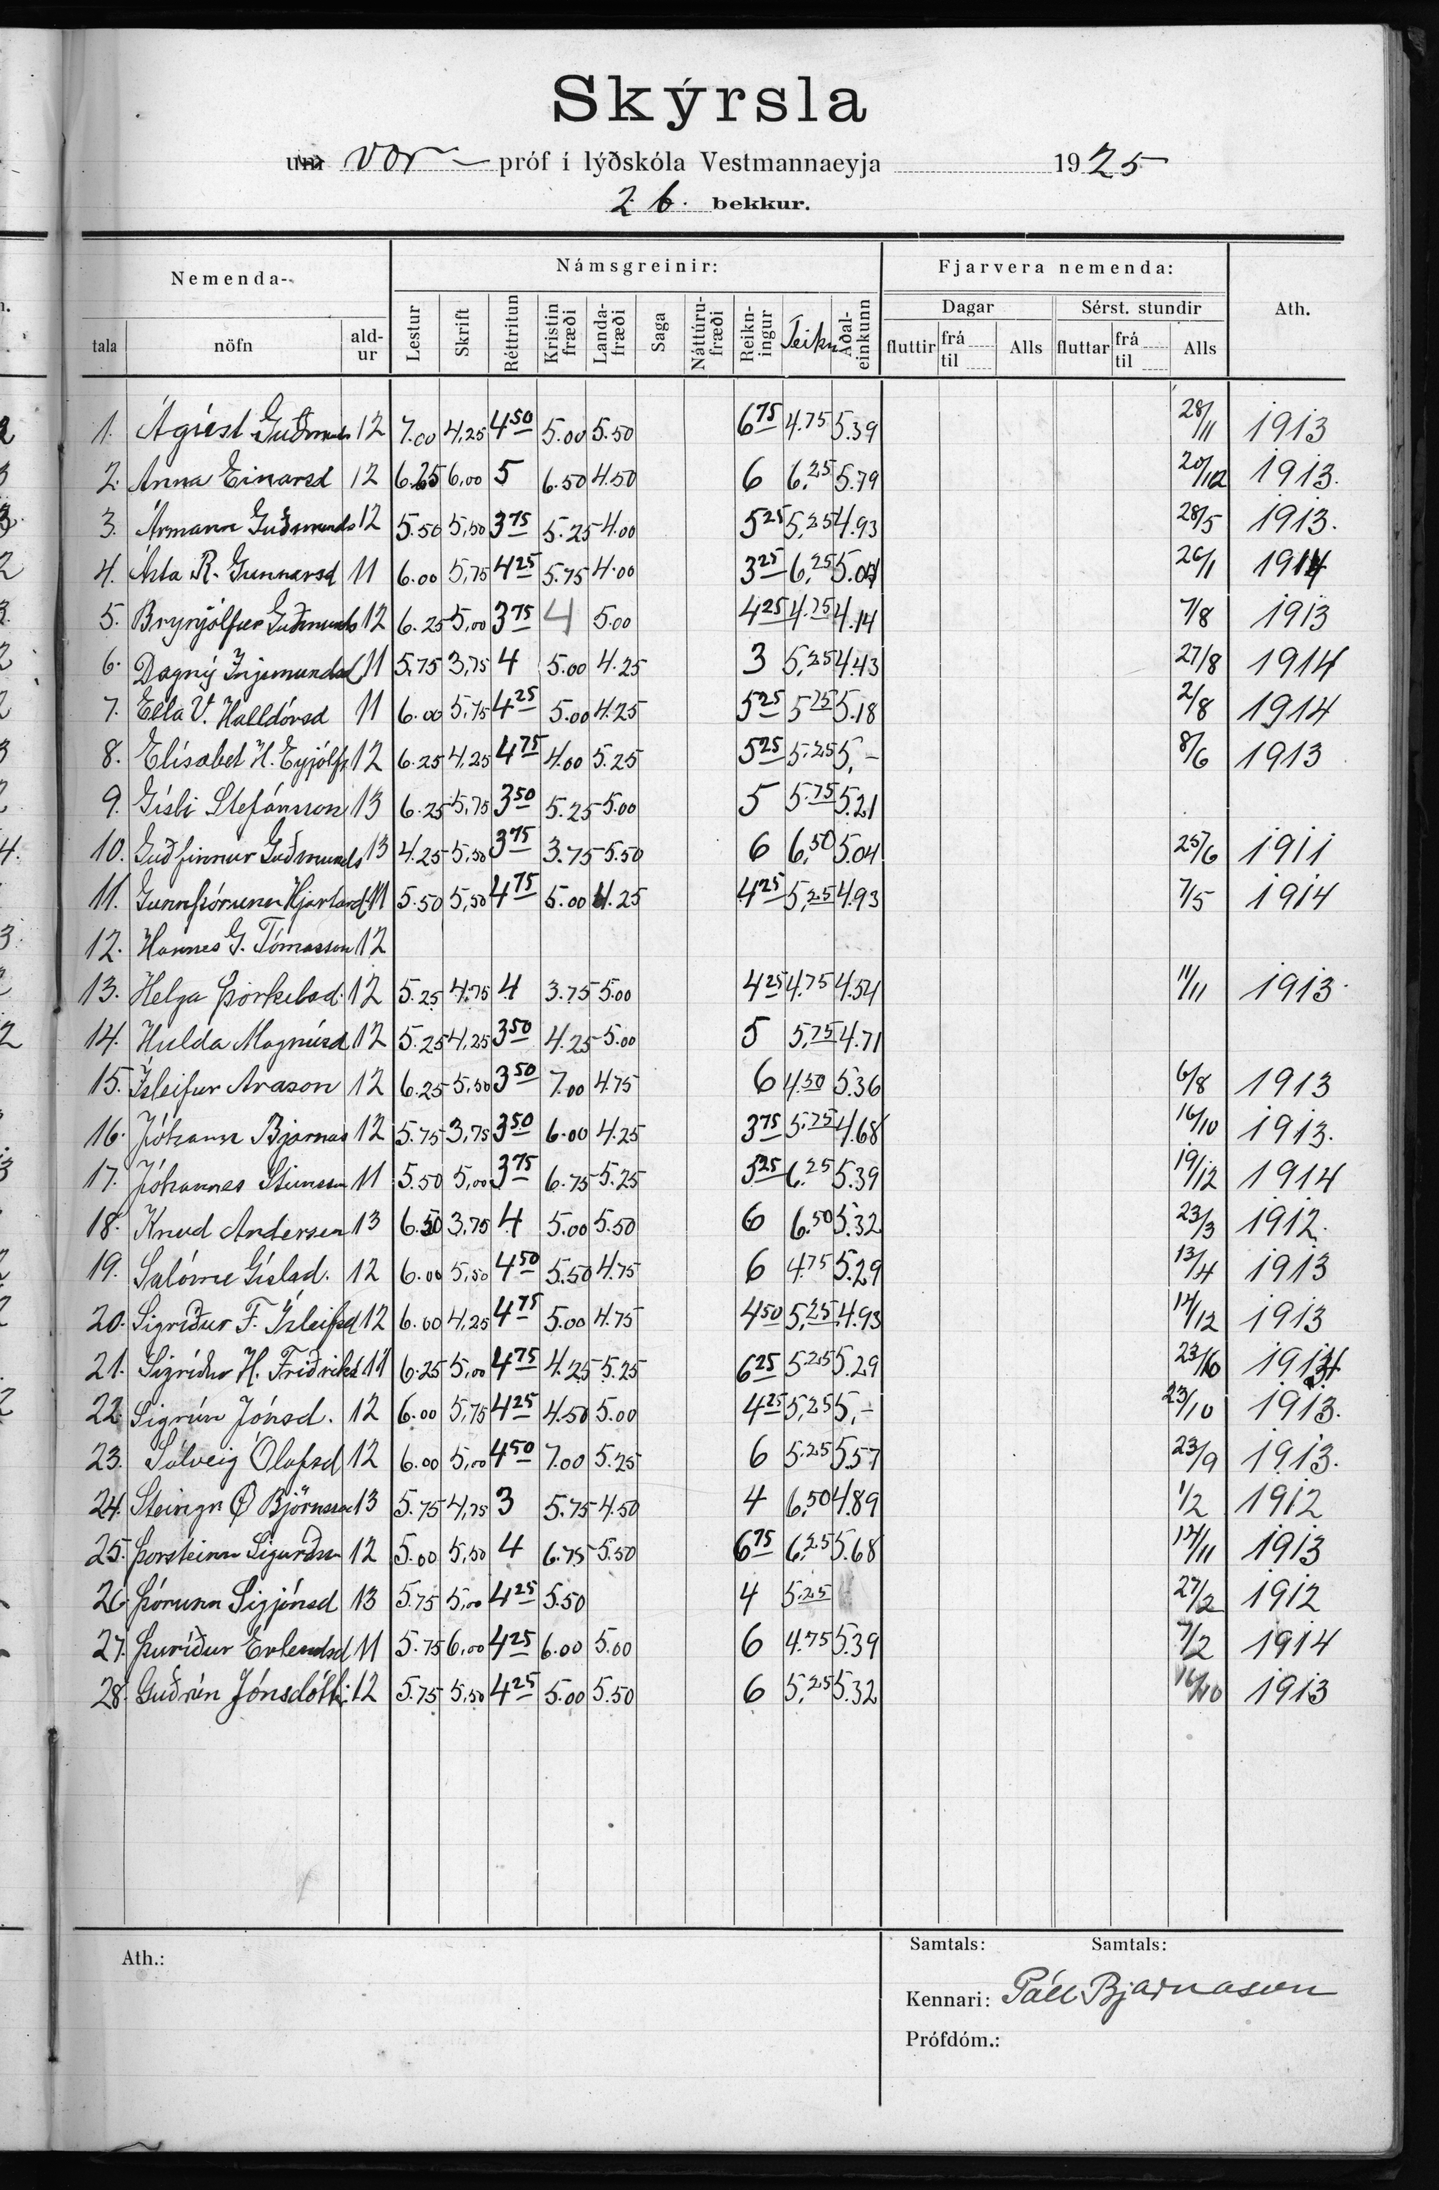 Skýrsla
um vor- próf í lýðskóla Vestmannaeyja 1925
2. b. bekkur.
Nemenda-
Námsgreinir:
Fjarvera nemenda:
Ath.
Dagar
Sérst. stundir
tala nöfn ald-ur Lestur Skrift Réttritun Kristin fræði Landa-fræði Saga Náttúru-fræði Reikn-ingur Teikn Aðal-einkunn fluttir frá til Alls fluttar frá til Alls
1. Ágúst Guðmunds 12 7.00 4,25 4 50 5.00 5.50 6 75 4.75 5.39 28/11 1913
2. Anna Einarsd 12 6.25 6,00 5 6.50 4.50 6 6,25 5.79 20/12 1913.
3. Ármann Guðmunds 12 5.50 5,50 3 75 5.25 4.00 5 25 5,25 4.93 28/5 1913.
4. Ásta R. Gunnarsd 11 6.00 5,75 4 25 5.75 4.00 3 25 6,25 5.04 26/1 1914
5. Brynjólfur Guðmunds 12 6.25 5,00 3 75 4 5.00 4 25 4.75 4.14 7/8 1913
6. Dagný Ingimundsd 11 5,75 3,75 4 5.00 4.25 3 5,25 4.43 27/8 1914
7. Ella V. Halldórsd 11 6.00 5,75 4 25 5.00 4.25 5 25 5 75 5.18 2/8 1914
8. Elísabet H. Eyjólfs 12 6.25 4,25 4 75 4.00 5.25 5 25 5.25 5,- 8/6 1913
9. Gísli Stefánsson 13 6.25 5,75 3 50 5.25 5.00 5 5.75 5.21
10. Guðfinnur Guðmunds 13 4.25 5,50 3 75 3.75 5.50 6 6,50 5.04 25/6 1911
11. Gunnþórunn Hjartard 11 5.50 5,50 4 75 5.00 4.25 4 25 5,25 4.93 7/5 1914
12. Hannes G. Tómasson 12
13. Helga Þorkelsd. 12 5.25 4.75 4 3.75 5.00 4 25 4.75 4.54 11/11 1913.
14. Hulda Magnúsd 12 5.25 4,25 3 50 4.25 5.00 5 5,75 4.71
15. Ísleifur Arason 12 6.25 5,50 3 50 7.00 4.75 6 4.50 5.36 6/8 1913
16. Jóhann Bjarnas 12 5.75 3,75 3 50 6.00 4.25 3 75 5.75 4.68 16/10 1913.
17. Jóhannes 11 5.50 5,00 3 75 6.75 5.25 5 25 6,25 5.39 19/12 1914
18. Knud Andersen 13 6.50 3,75 4 5.00 5.50 6 6.50 5.32 23/3 1912.
19. Salóme Gíslad. 12 6.00 5,50 4 50 5.50 4.75 6 4.75 5.29 13/4 1913
20. Sigríður F. Ísleifsd 12 6.00 4,25 4 75 5.00 4.75 4 50 5,25 4.93 14/12 1913
21. Sigríður H. Friðriksd 11 6.25 5,00 4 75 4.25 5.25 6 25 5.25 5.29 23/10 1914
22. Sigrún Jónsd. 12 6.00 5,75 4 25 4.50 5.00 4 25 5,25 5,- 23/10 1913.
23. Sólveig Ólafsd 12 6.00 5,00 4 50 7.00 5.25 6 5.25 5.57 23/9 1913.
24. Steingr Ö Björnsson 13 5.75 4,75 3 5.75 4.50 4 6,50 4.89 1/2 1912
25. Þorsteinn Sigurðsson 12 5.00 5,50 4 6.75 5.50 6 75 6,25 5.68 14/11 1913
26. Þórunn Sigjónsd 13 5.75 5,00 4 25 5.50 4 5.25 27/2 1912
27. Þuríður Erlendsd 11 5.75 6,00 4 25 6.00 5.00 6 4.75 5.39 7/2 1914
28. Guðrún Jónsdótti. 12 5.75 5,50 4 25 5.00 5.50 6 5,25 5.32 16/10 1913
Ath.:
Samtals: Samtals:
Kennari: Páll Bjarnason
Prófdóm.: